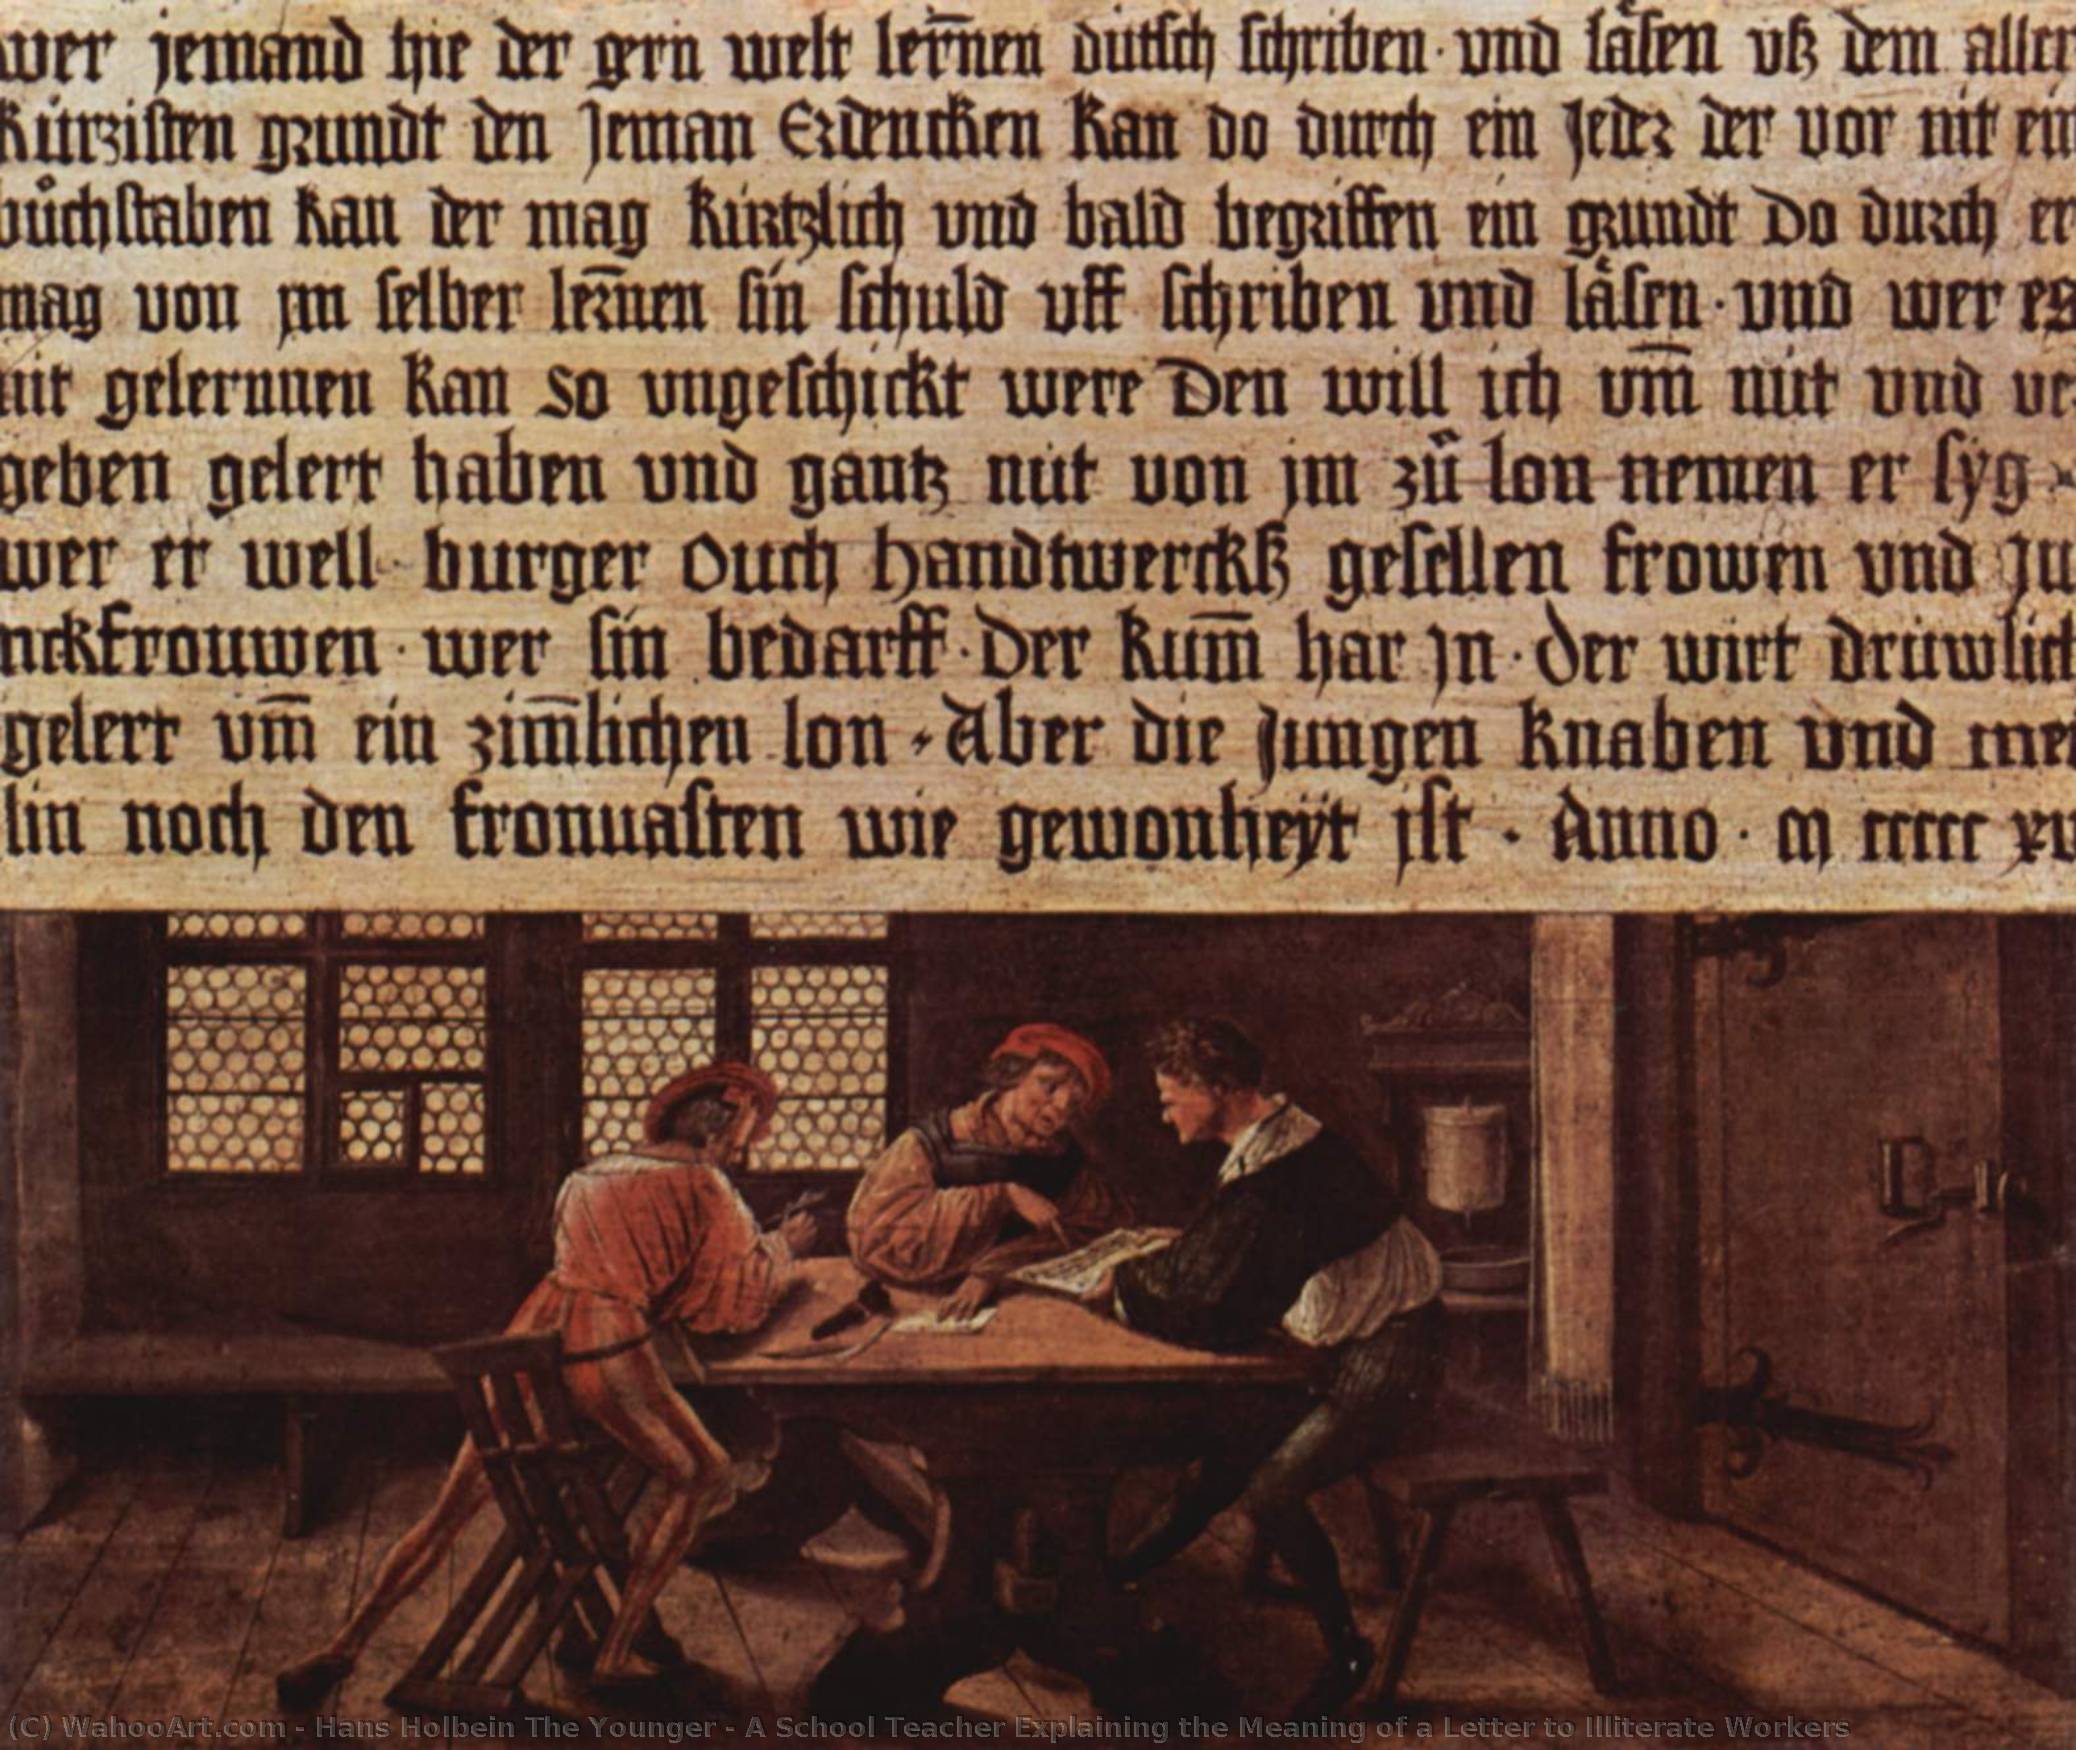 wer jemand hie der gern welt lern̄en dütsch schriben · vnd läsen vß dem aller
kürtzisten grundt den Jeman Erdencken kan do durch ein Jeder der vor nit ein
bůchstaben kan der mag kürtzlich vnd bald begriffen ein grundt Do durch er
mag von jm selber lern̄en sin schuld vff schriben vnd läsen · vnd wer es
nit gelernnen kan so vngeschickt were Den will ich vm̄ nüt vnd ver
geben gelert haben vnd gantz nüt von jm zů lon nemen er syg
wer er well · burger ouch handtwerckß gesellen frowen vnd ju
nckfrouwen · wer sin bedarff · Der kum̄ har jn · der wirt drüwlich
gelert vm̄ ein zim̄lichen lon · Aber die jungen knaben vnd mei
lin noch den fronuasten wie gewonheÿt jst · Anno · m ccccc xv
(C) WahooArt.com - Hans Holbein The Younger - A School Teacher Explaining the Meaning of a Letter to Illiterate Workers